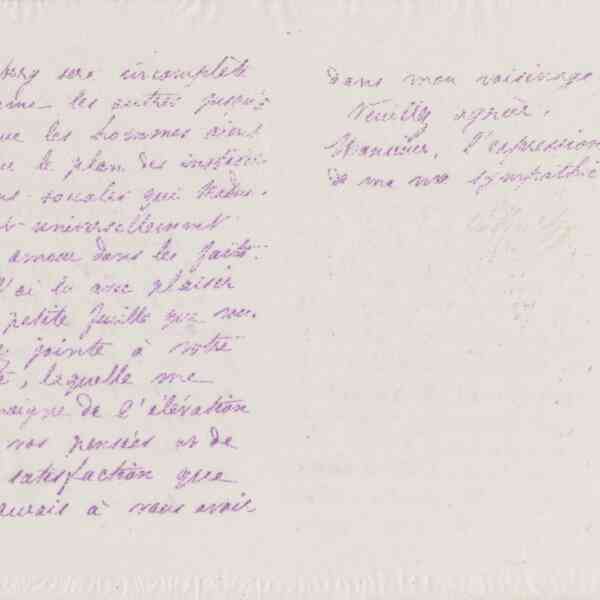 sera incomplète
les autres jusqu'à
que les hommes aient
le plan des institu-
sociales qui
universellement
amour dans les faits.
J'ai lu avec plaisir
petite feuille que vou.
jointe à votre
, laquelle me
de l'élévation
vos pensées et de
satisfaction que
j'aurais à vous avoir
dans mon voisinage
Veuillez agréer,
Monsieur, l'expression
de ma vive sympathie